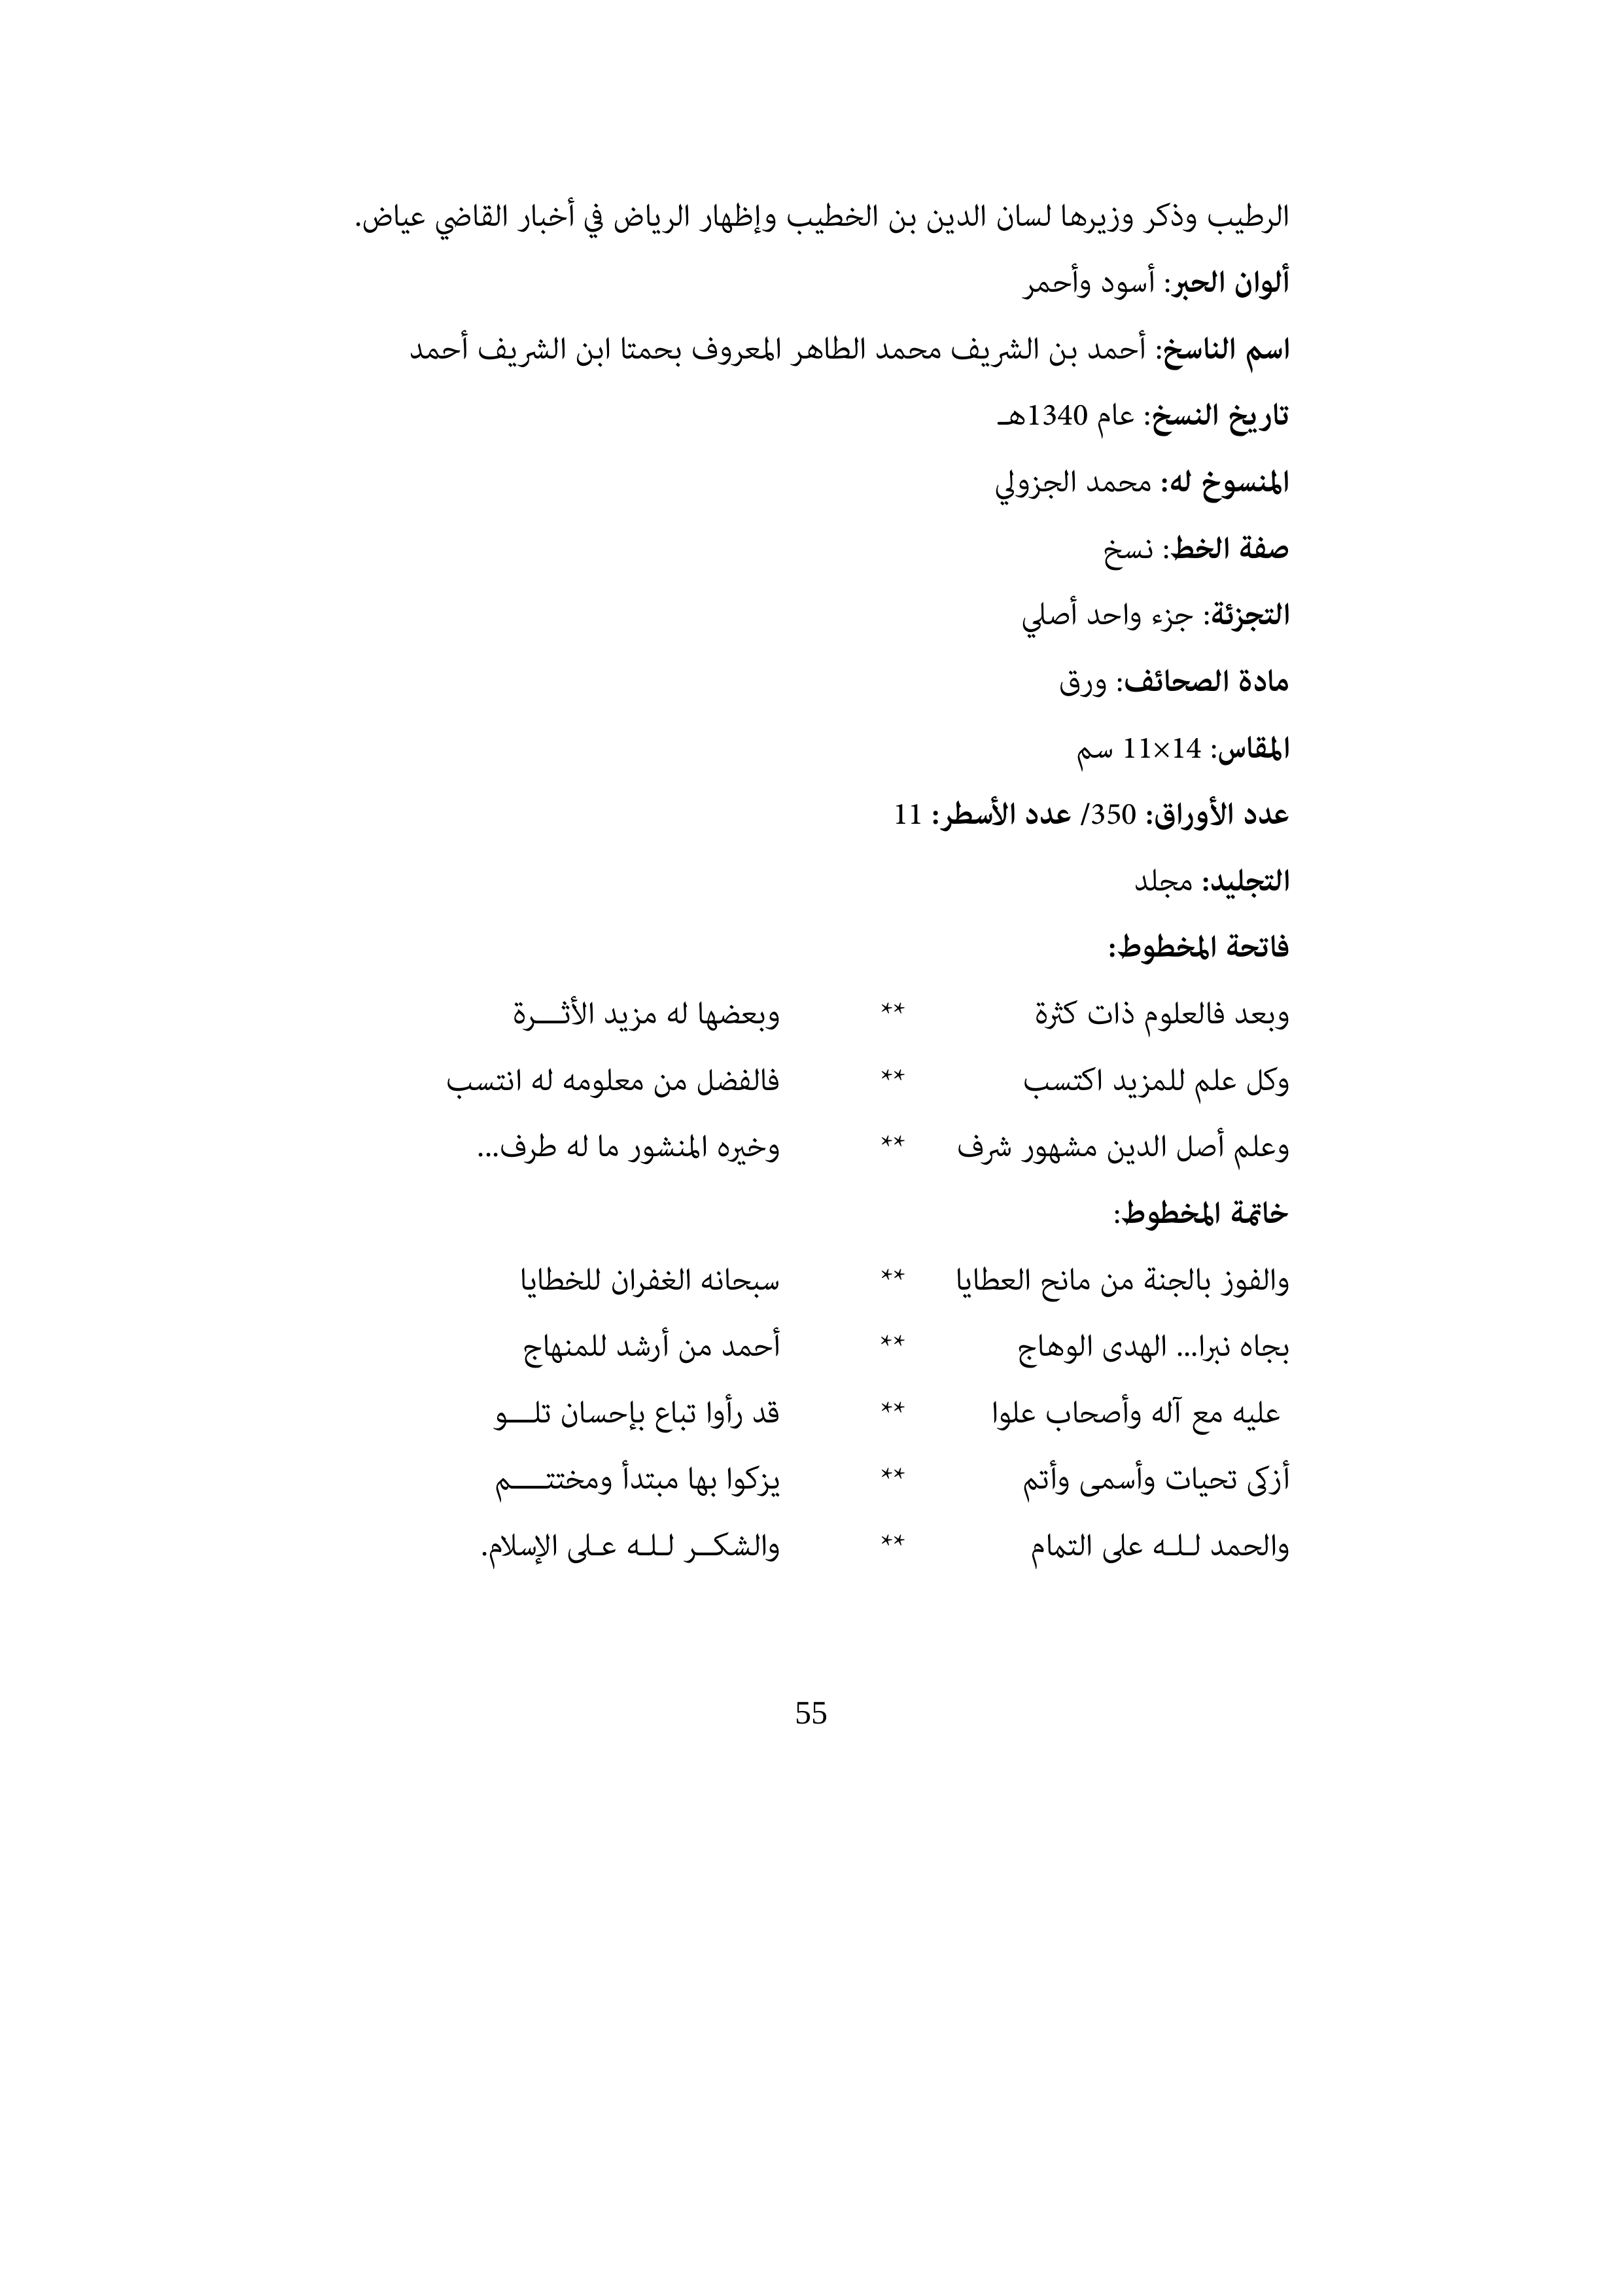 الرطيب وذكر وزيرها لسان الدين بن الخطيب وإظهار الرياض في أخبار القاضي عياض.
ألوان الحبر: أسود وأحمر
اسم الناسخ: أحمد بن الشريف محمد الطاهر المعروف بحمتا ابن الشريف أحمد
تاريخ النسخ: عام 1340هـ
المنسوخ له: محمد الجزولي
صفة الخط: نسخ
التجزئة: جزء واحد أصلي
مادة الصحائف: ورق
المقاس: 14×11 سم
عدد الأوراق: 350/ عدد الأسطر: 11
التجليد: مجلد
فاتحة المخطوط:
وبعد فالعلوم ذات كثرة ** وبعضها له مزيد الأثـــرة
وكل علم للمزيد اكتسب ** فالفضل من معلومه له انتسب
وعلم أصل الدين مشهور شرف ** وخيره المنشور ما له طرف...
خاتمة المخطوط:
والفوز بالجنة من مانح العطايا ** سبحانه الغفران للخطايا
بجاه نبرا... الهدى الوهاج ** أحمد من أرشد للمنهاج
عليه مع آله وأصحاب علوا ** قد رأوا تباع بإحسان تلـــو
أزكى تحيات وأسمى وأتم ** يزكوا بها مبتدأ ومختتـــــم
والحمد لـلـه على التمام ** والشكــر لـلـه عـلى الإسلام.
55